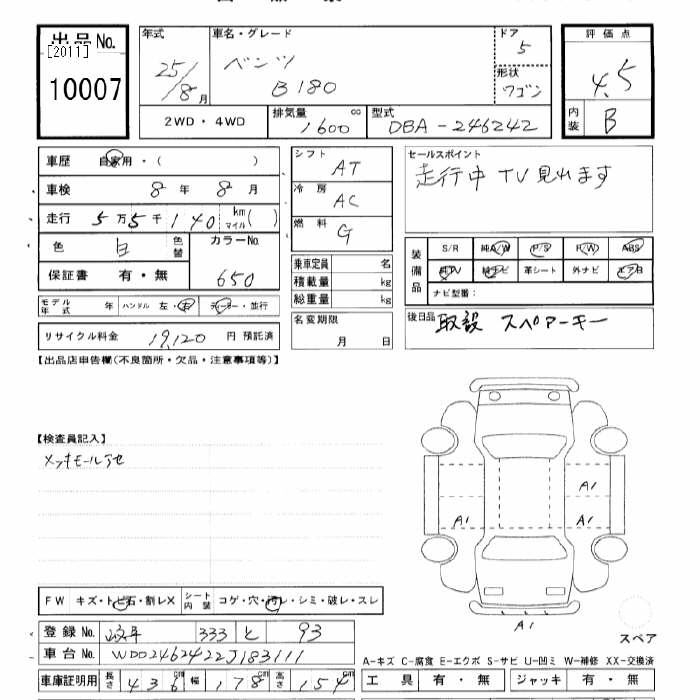 出品No.
[2011]
10007
年式
25/8月
車名・グレード
ベンツ
B180
ドア
5
形状
ワゴン
評価点
4.5
内装
B
2WD・4WD
排気量
cc
1600
型式
DBA-246242
車歴 自家用・( )
車検 8年 8月
走行 5万5千140 km マイル( )
色 白 色替
カラーNo.
650
保証書 有・無
モデル年式 年 ハンドル 左・右 ・並行
リサイクル料金 19,120 円 預託済
シフト
AT
冷房
AC
燃料
G
乗車定員 名
積載量 kg
総重量 kg
名変期限
月 日
セールスポイント
走行中TV見れます
装備品
S/R 純A/W P/S P/W ABS
純TV 純ナビ 革シート 外ナビ エアB
ナビ型番:
後日品 取説 スペアーキー
【出品店申告欄(不良箇所・欠品・注意事項等)】
【検査員記入】
メッキモールアセ
A1
A1
A1
A1
A1
スペア
FW キズ・トビ石・割レX
シート内装 コゲ・穴・汚レ・シミ・破レ・スレ
登録No. 333 と 93
車台No. WDD2462422J183111
車庫証明用 長さ 436cm 幅 178cm 高さ 154cm
A-キズ C-腐食 E-エクボ S-サビ U-凹ミ W-補修 XX-交換済
工具 有・無 ジャッキ 有・無